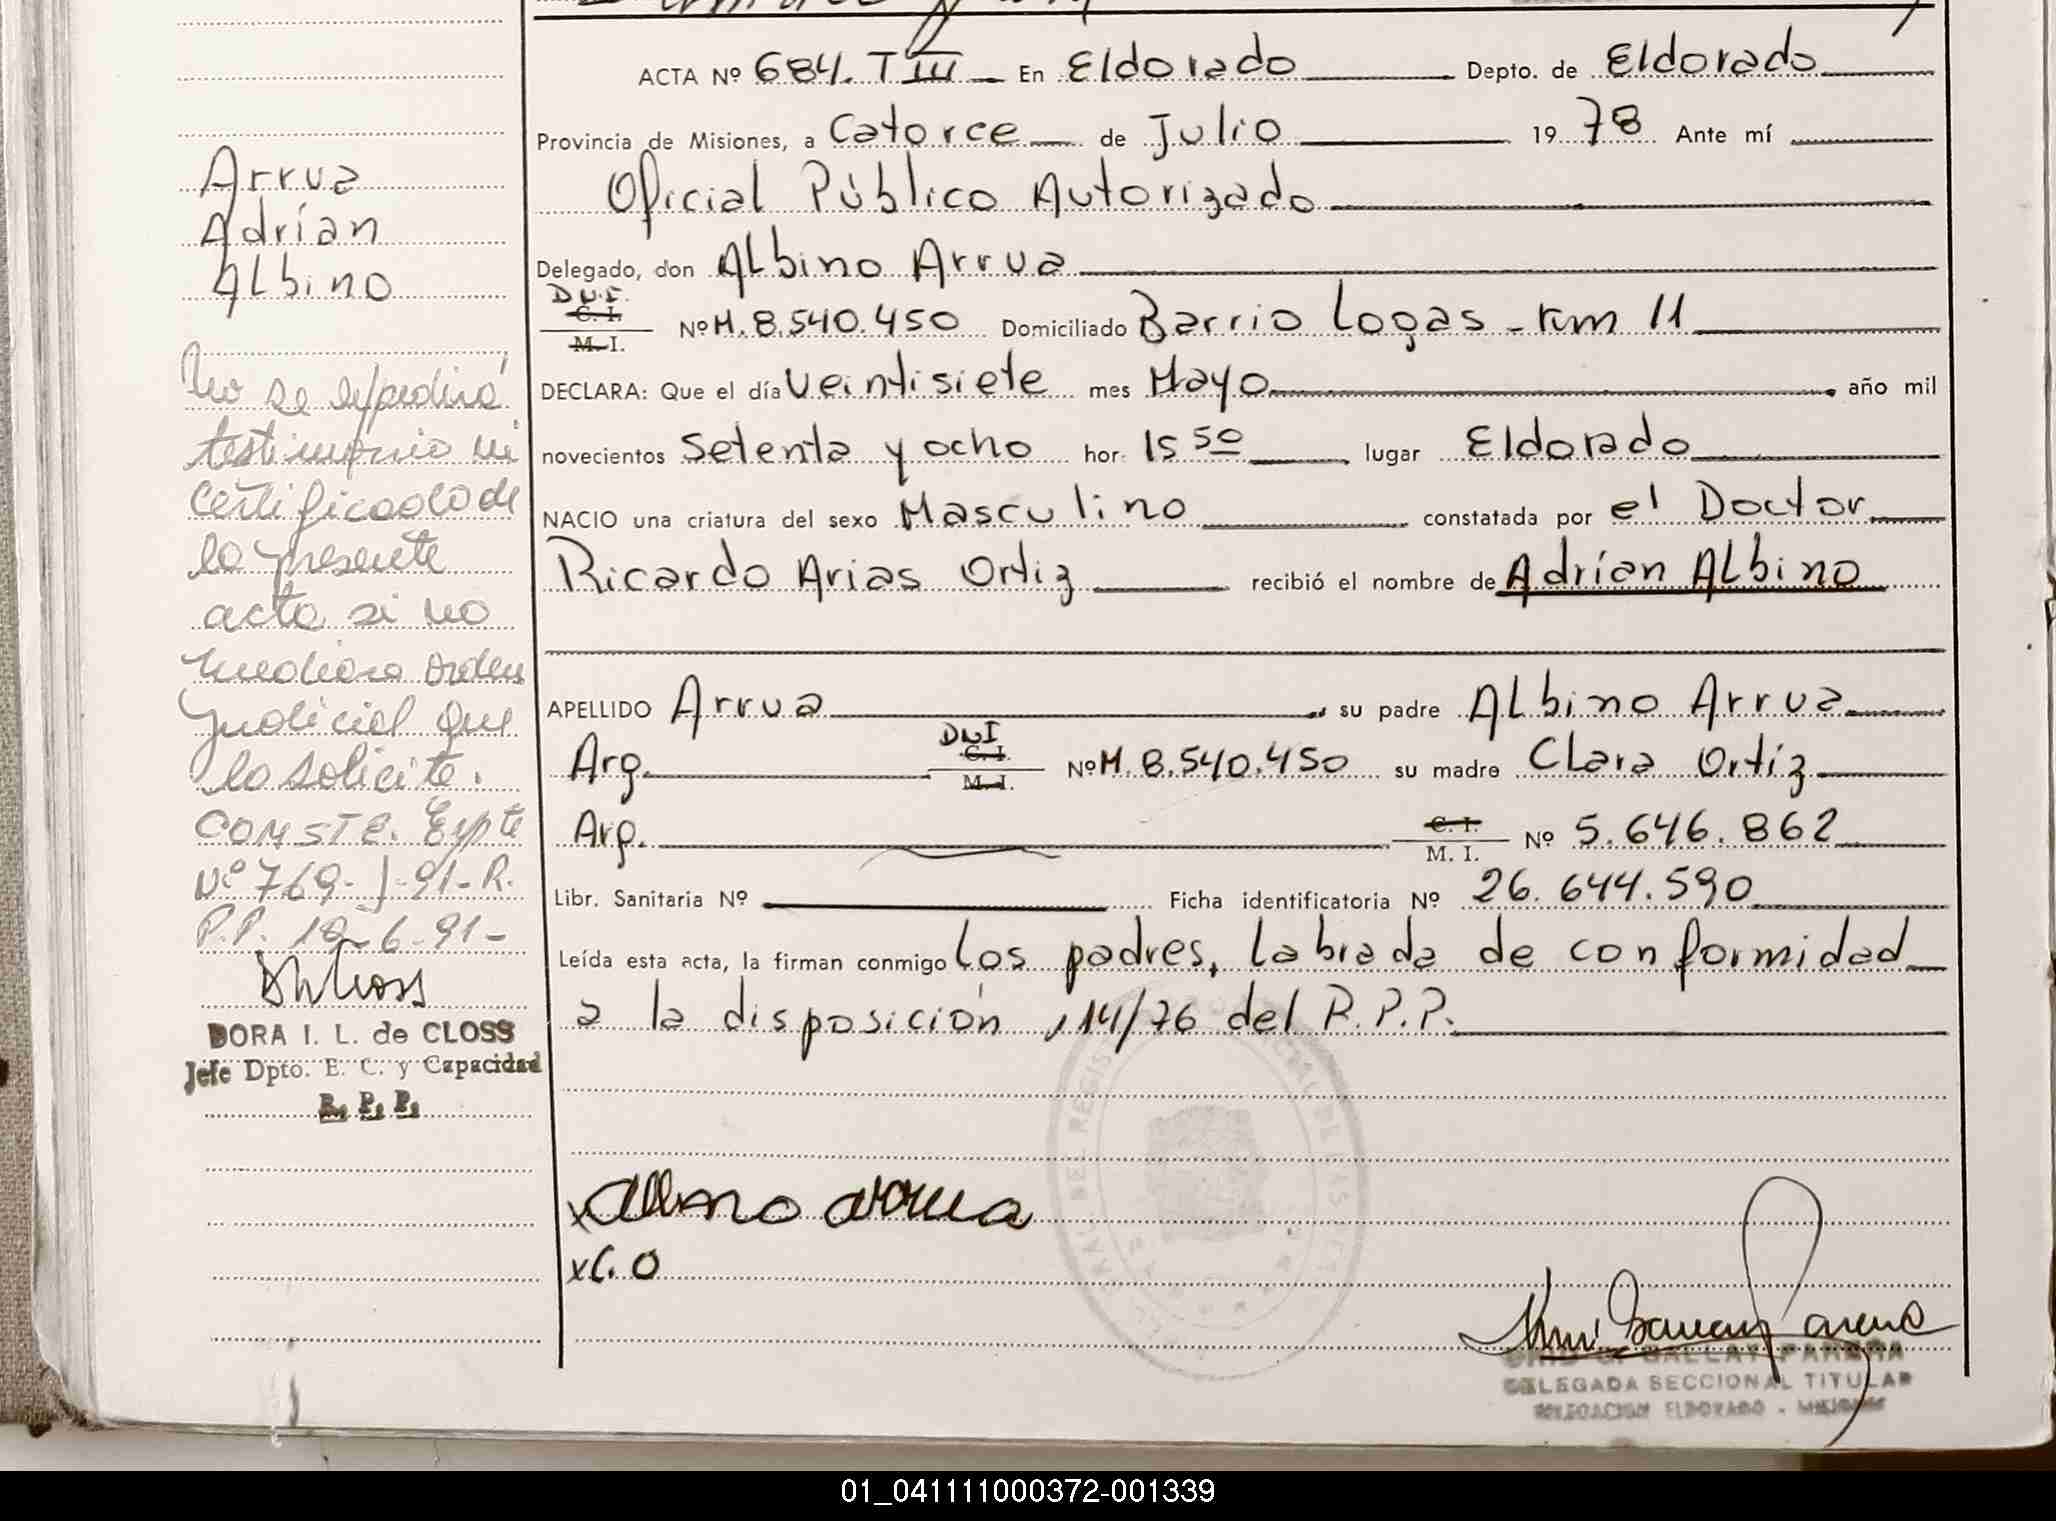 ACTA Nº 684. T III En Eldorado Depto. de Eldorado
Provincia de Misiones, a Catorce de Julio 1978 Ante mí
Oficial Público Autorizado
Delegado, don Albino Arrua
D.N.I. C. I. M. I. Nº M. 8.540.450 Domiciliado Barrio Logas - km 11
DECLARA: Que el día Veintisiete mes Mayo, año mil
novecientos Setenta y ocho hor. 15 50 lugar Eldorado
NACIO una criatura del sexo Masculino constatada por el Doctor
Ricardo Arias Ortiz recibió el nombre de Adrían Albino
APELLIDO Arrua, su padre Albino Arrua
Arg. DNI C. I. M. I. Nº M. 8.540.450 su madre Clara Ortiz
Arg. C. I. M. I. Nº 5.646.862
Libr. Sanitaria Nº Ficha identificatoria Nº 26.644.590
Leída esta acta, la firman conmigo los padres, labrada de conformidad
a la disposición 14/76 del R.P.P.
x Albino Arrua
x C. O
DELEGADA SECCIONAL TITULAR
DELEGACION ELDORADO - MISIONES
Arrua
Adrían
Albino
No se expedirá
testimonio ni
certificado de
la presente
acta si no
mediara orden
judicial que
lo solicite.
CONSTE. Expte
Nº 769-J-91-R.
P.P. 19-6-91-
DORA I. L. de CLOSS
Jefe Dpto. E. C. y Capacidad
R. P. P.
01_041111000372-001339